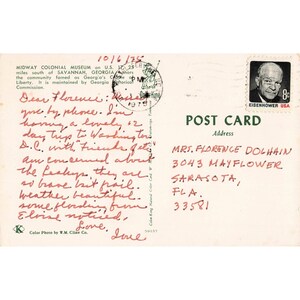 MIDWAY COLONIAL MUSEUM on U.S. 17, 25
miles south of SAVANNAH, GEORGIA, honors
the community famed as Georgia's Cradle of
Liberty. It is maintained by Georgia Historical
Commission.
10/6/75
Dear Florence:
you by phone. I'm
having a lovely 12
day trip to Washington
D.C. with friends.
am concerned about
the
so brave but frail.
Weather beautiful
some flooding from
Eloise noticed.
Love,
K
Color Photo by W.M. Cline Co.
PM
1975
EISENHOWER USA
8c
POST CARD
Address
MRS. FLORENCE DOGHAIN
3043 MAYFLOWER
SARASOTA,
FLA.
33581